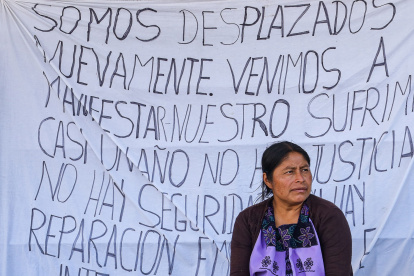 SOMOS DESPLAZADOS
NUEVAMENTE. VENIMOS A
MANIFESTAR NUESTRO SUFRIM
CASI UN AÑO NO JUSTICIA
NO HAY SEGURIDA HAY
REPARACIÓN